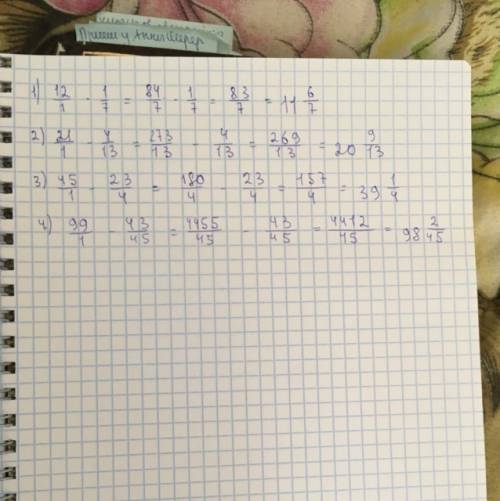 Пишем у Анны Шерер
1) 12/1 - 1/7 = 84/7 - 1/7 = 83/7 = 11 6/7
2) 21/1 - 4/13 = 273/13 - 4/13 = 269/13 = 20 9/13
3) 45/1 - 23/4 = 180/4 - 23/4 = 157/4 = 39 1/4
4) 99/1 - 43/45 = 4455/45 43/45 = 4412/45 = 98 2/45